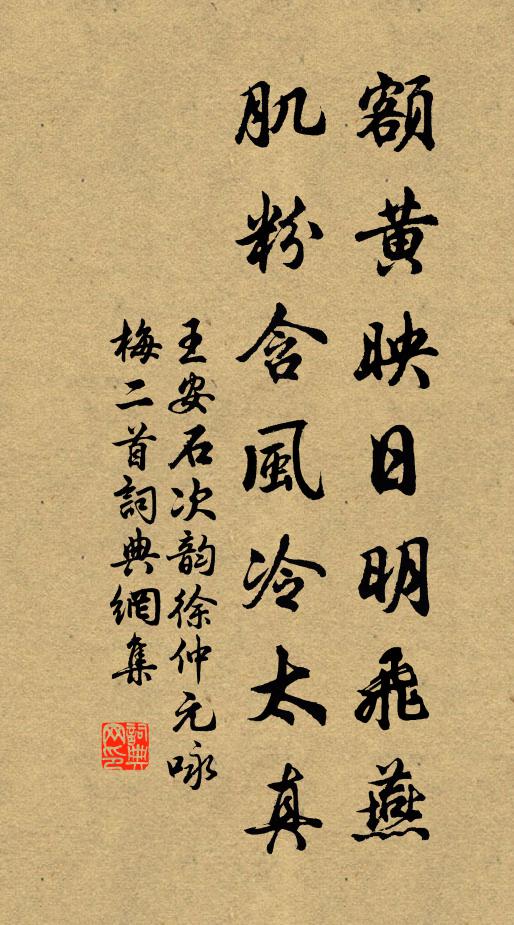 額黄映日明飛燕
肌粉含風冷太真
王安石次韵徐仲元咏
梅二首詞典網集
詞典
网印